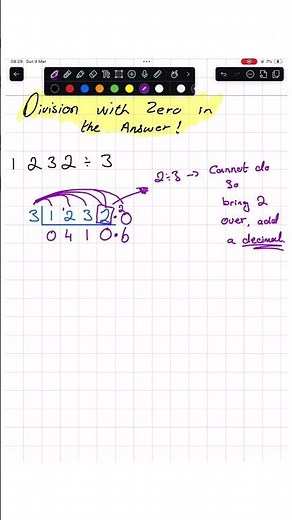 08:29 Sun 9 Mar
7%
Division with Zero in
the Answer!
1232÷3
2÷3 → Cannot do
so
bring 2
over, add
a decimal.
3 1 ¹2 3 2.²0
0 4 1 0.6